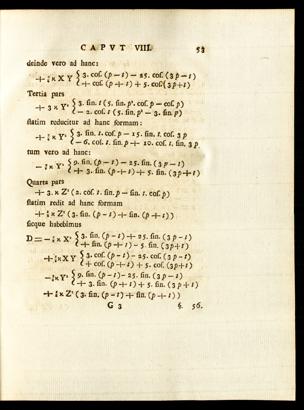 CAPVT VIII. 53
deinde vero ad hanc:
+ κ X Y { 3. cof. (p − t) − 25. cof. (3 p − t)
+ cof. (p + t) + 5. cof. (3p + t)
Tertia pars
+ 3 κ Y² { 3. fin. t (5. fin. p². cof. p − cof. p)
− 2. cof. t (5. fin. p³ − 3. fin. p)
ftatim reducitur ad hanc formam:
κ Y² { 3. fin. t. cof. p − 15. fin. t. cof. 3 p
− 6. cof. t. fin. p + 10. cof. t. fin. 3 p
tum vero ad hanc:
κ Y² { 9. fin. (p − t) − 25. fin. (3 p − t)
+ 3. fin. (p + t) + 5. fin. (3p + t)
Quarta pars
+ 3. κ Z² (2. cof. t. fin. p − fin. t. cof. p)
ftatim redit ad hanc formam
κ Z² (3. fin. (p − t) + fin. (p + t))
ficque habebimus
D = κ X² { 3. fin. (p − t) + 25. fin. (3 p − t)
+ fin. (p + t) − 5. fin. (3p + t)
+ κ X Y { 3. cof. (p − t) − 25. cof. (3 p − t)
+ cof. (p + t) + 5. cof. (3p + t)
κ Y² { 9. fin. (p − t) − 25. fin. (3 p − t)
+ 3. fin. (p + t) + 5. fin. (3 p + t)
+ κ Z² (3. fin. (p − t) + fin. (p + t))
G 3 §. 56.